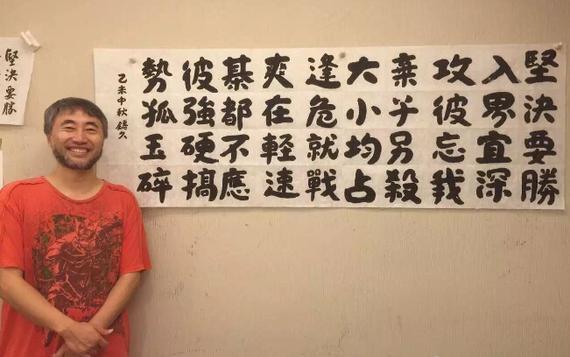 堅決要勝
入界宜深
攻彼忘我
棄乎另殺
大小均占
逢危就戰
爽在輕速
棊都不應
彼強硬搞
勢狐玉碎
乙未中秋
堅決要勝